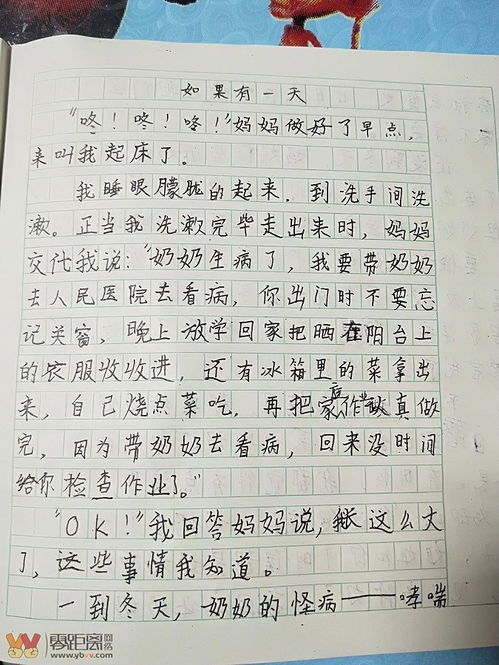 如果有一天
"咚！咚！咚！"妈妈做好了早点，
来叫我起床了。
我睡眼朦胧的起来．到洗手间洗
漱。正当我洗漱完毕走出来时，妈妈
交代我说："奶奶生病了，我要带奶奶
去人民医院去看病，你出门时不要忘
记关窗，晚上放学回家把晒在阳台上
的衣服收收进，还有冰箱里的菜拿出
来，自己烧点菜吃，再把家庭作业认真做
完，因为带奶奶去看病，回来没时间
给你检查作业了。"
"OK！"我回答妈妈说，我这么大
了，这些事情我知道。
一到冬天，奶奶的怪病——哮喘
零距离网络
www.ybvv.com